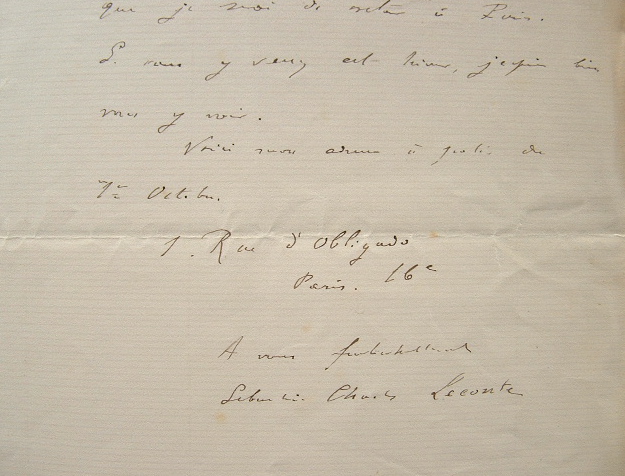 que je serai de retour à Paris.
Si vous y venez cet hiver, j'espère bien
vous y voir.
Voici mon adresse à partir du
1er Octobre.
1. Rue d'Obligado
Paris. 16e
A vous
Sébastien Charles Leconte